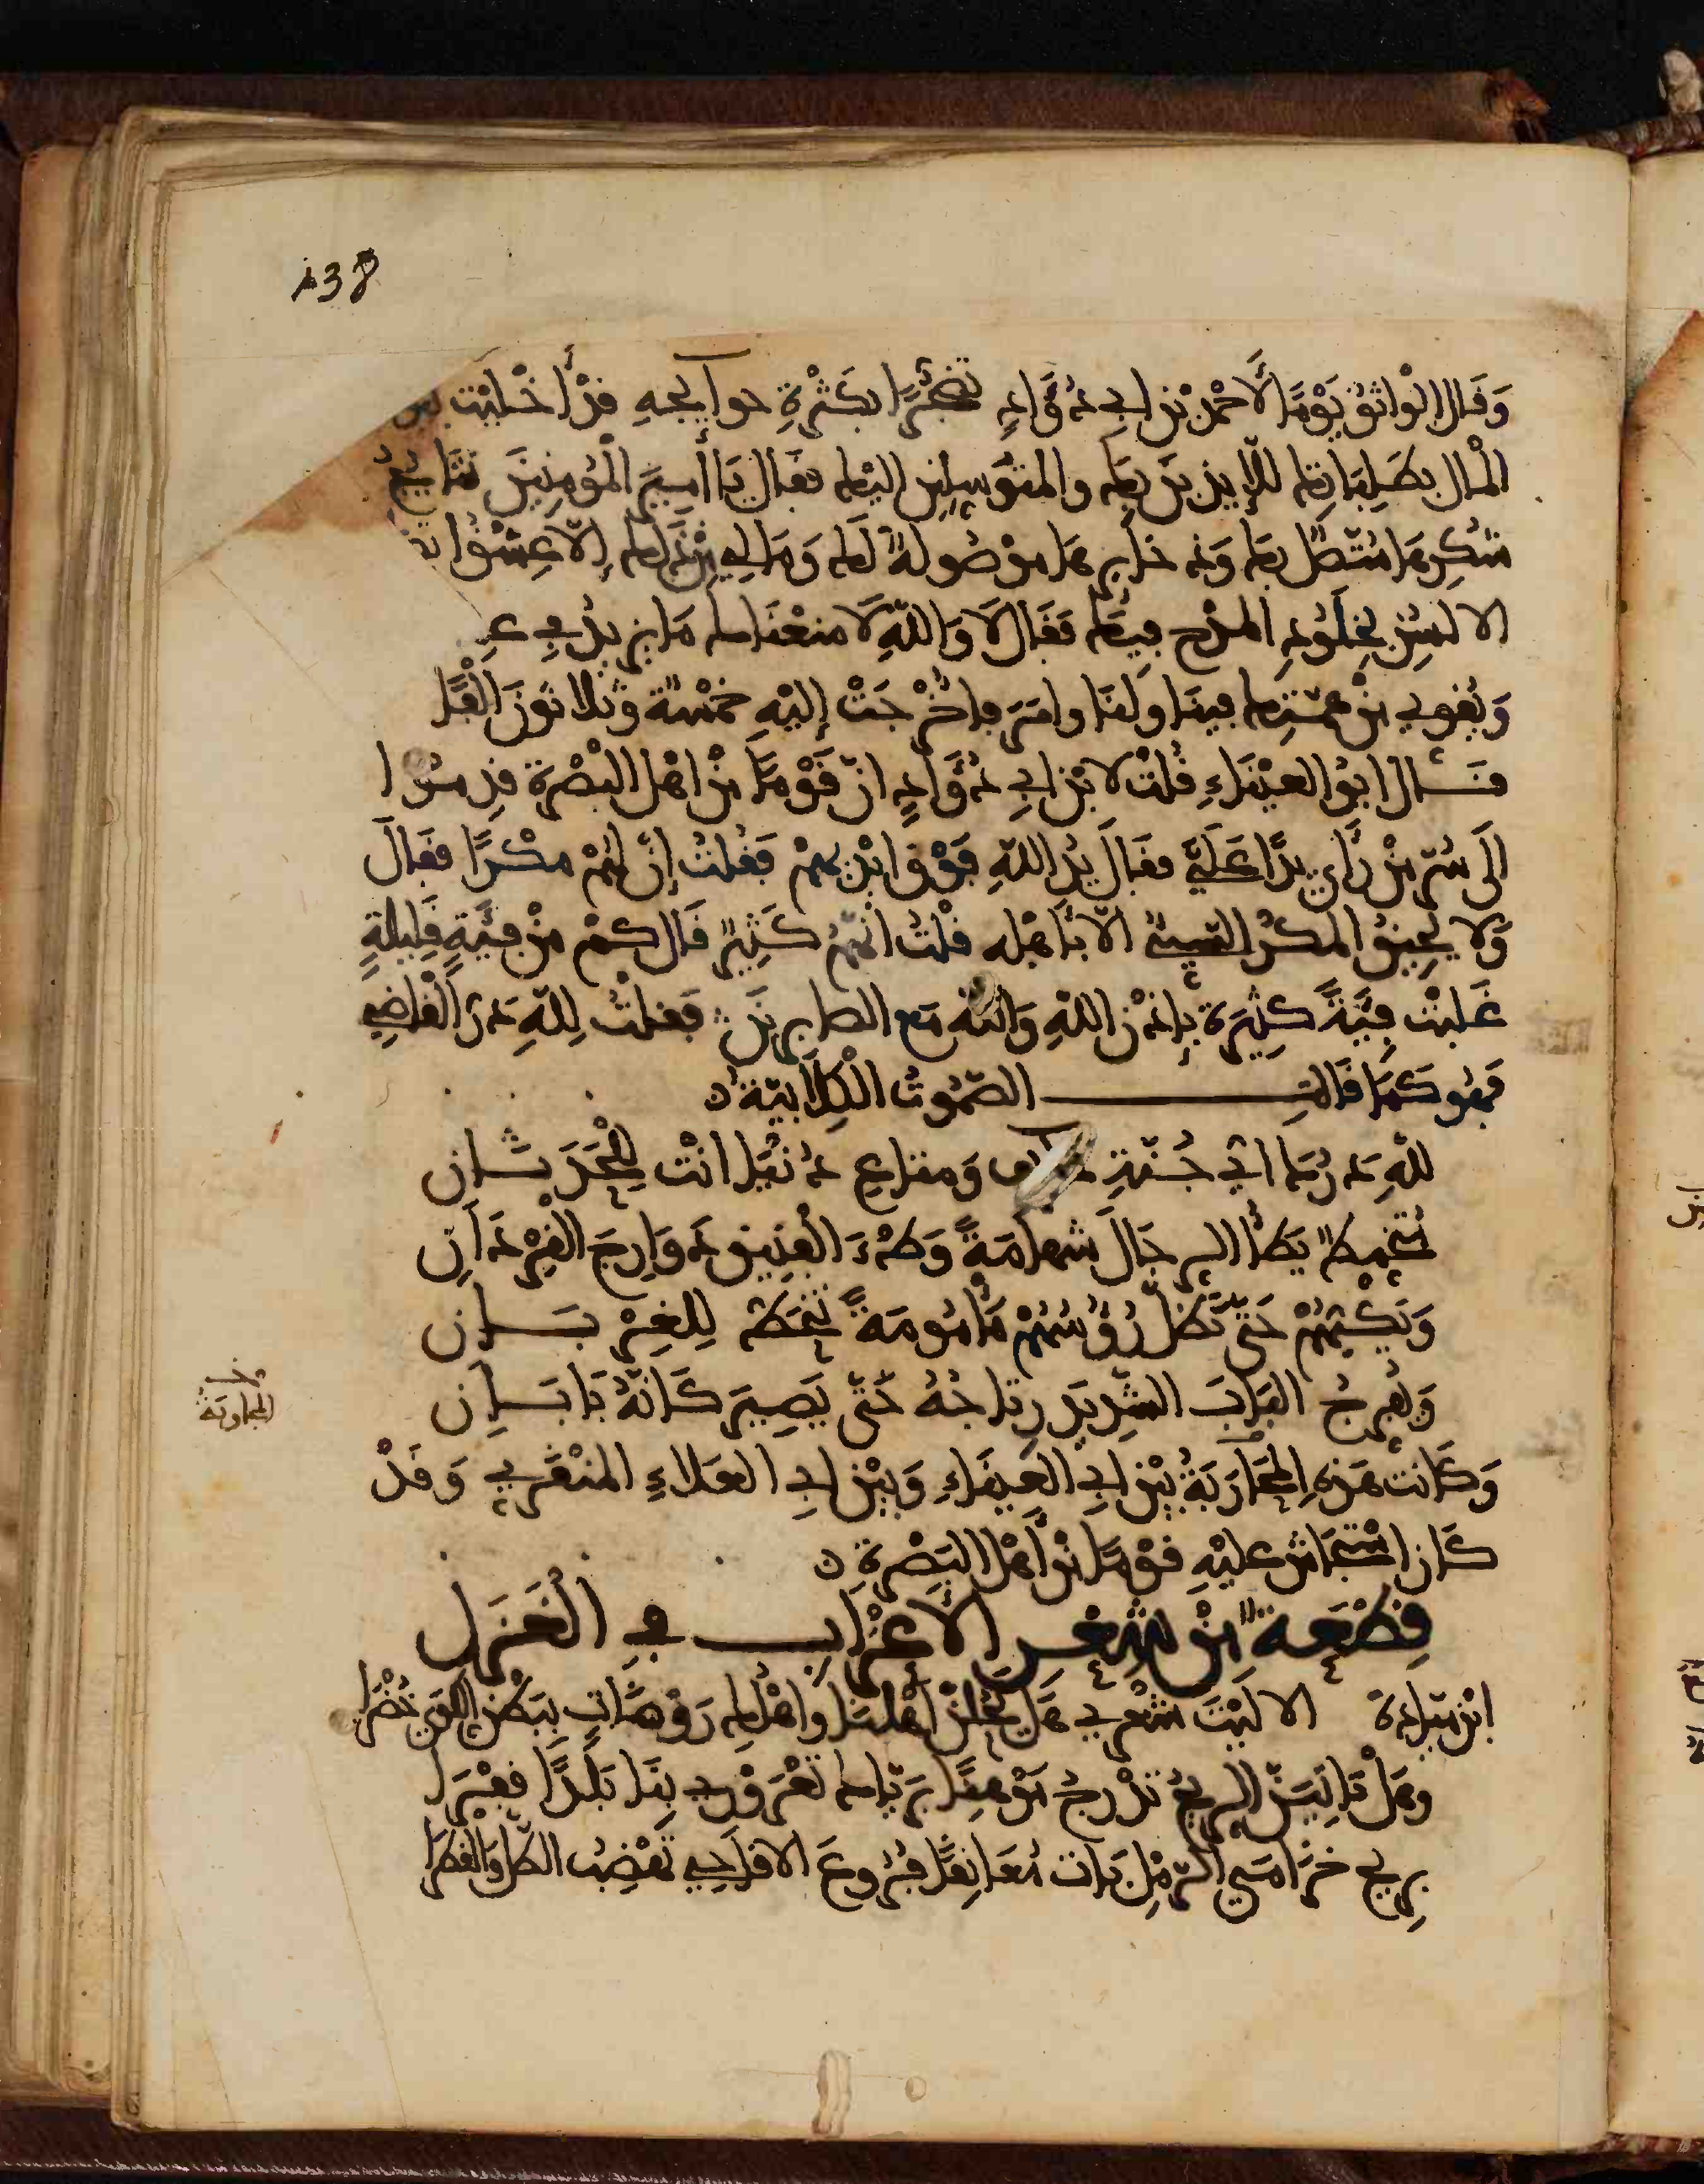 138
وَقَال الواثقُ يَوْمًا لأحمدَ بن ابي دُؤَادٍ تضجُّرًا بكَثْرةِ حوايجهِ قد أَخْلَيْت
المال بطَلِبَاتِك للّايذين بك والمتوسلين اليك فقال يَا أمير المؤمنين نتايجُ
شكرِها متّصلٌ بك وذخايرها موصُولةٌ لك وَمَا لي من ذلك إلا عِشْقُ
الالسنِ بخلودِ المدح فيك فقَال لَا وَاللّهِ لَا منعنَاك مَا يزيدُ في
وَيُقوي من همّتك فينا ولنَا وامَر فأُخْرجَتْ إليْهِ خمْسةٌ وثلاثونَ ألْفًا
قــال ابو العيْنَاءِ قُلت لابن ابي دُؤَادٍ انّ قَوْمًا من اهل البَصْرة قدِموا
الَى سُرّ مَنْ رَأى يدًا عَلَيَّ فقَالَ يدُ اللّهِ فَوْق ايْديهمْ فقُلتُ إنّ لهُمْ مكْرًا فقال
وَلا يَحِيقُ المكرُ السّيئُ الّا بأهْله قلتُ انّهُمْ كَثِيرٌ قَال كمْ مِنْ فيَةٍ قَلِيلةٍ
غَلَبَتْ فِيَةً كثِيرَة بإذْن اللهِ وَاللّهُ مَع الصابرينَ فقلْتُ لِلّهِ دَرُّ الْقاضي
فهُو كمَا قَالتِ الصّمُوتُ الْكِلَابيّةُ
للّهِ دَرُّك ايّ جُنّةِ خايف وَمتاع دُنْيَا انْت لِلْحَدَثـان
مُتخمِطٌ يَطأُ الرجَالَ شهامَةً وَطْءَ الفنِيقِ دَوَارِجَ الْقِرْدَانِ
وَيَكُبُّهُمْ حَتّى تَظَلَّ رُؤُسُهُمْ مَأْمُومَةً تنْحَطُّ لِلغِرْبَـانِ
وَيُفرجُ البَابَ الشّدِيدَ رِتاجُهُ حَتّى يَصِيرَ كَأنّهُ بَابَـانِ
المجاوبةُ
وَكَانت هَذِهِ المحَارَبَةُ بيْن ابي العيناءِ وَبيْن ابي العَلاءِ المنْقَري وَقَدْ
كَان اسْتَجاش عليْهِ قوْمًا منْ أَهْل البَصْرة
قِطْعَة منْ شِعْر الأعْرَاب في الْغَزَل
ابْن مَيادةَ الا لَيْتَ شعْري هَل يَحُلّنّ أهْلُنا وأهْلك رَوْضَاتٍ ببَطْن اللّوَى خُضْرَا
وهَلْ تَاتِيَنّ الريحُ تدْرجُ مَوْهِنًا برَيّاك تعْرَوْري بِنَا بَلَدًا قفْرَا
بريح خُزَامَى الرّمْل بَات مُعَانِقًا فُرُوعَ الاقَاحِي تَهْضِبُ الطّلّ وَالقَطْرَا